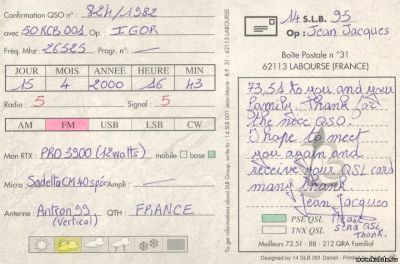 Confirmation QSO n° 824/1982
avec 50 KCB 001 Op. IGOR
Fréq. Mhz 26525 Progr. n°:
JOUR MOIS ANNEE HEURE MIN
15 4 2000 16 43
Radio: 5 Signal: 5
AM FM USB LSB CW
Mon RTX: PRO 3900 (12watts) mobile base
Micro: Sadelta CM40 spéc Ampli:
Antenne: Antron 99 (Vertical) QTH: FRANCE
To get information about SLB Group, write to: 14 SLB 001 Jean-Marie - B.P. 31 62113 LABOURSE
14 S.L.B. 95
Op: Jean Jacques
Boîte Postale n°31
62113 LABOURSE (FRANCE)
73,51 to you and your
Family. Thank for
the nice QSO.
I hope to meet
you again and
receive your QSL card
many thank.
Jean Jacques
PSE QSL
Please
send QSL
Thank.
TNX QSL
Meilleurs 73.51 - 88 - 212 QRA Familial
Printed by 14 SLB 281 Daniel